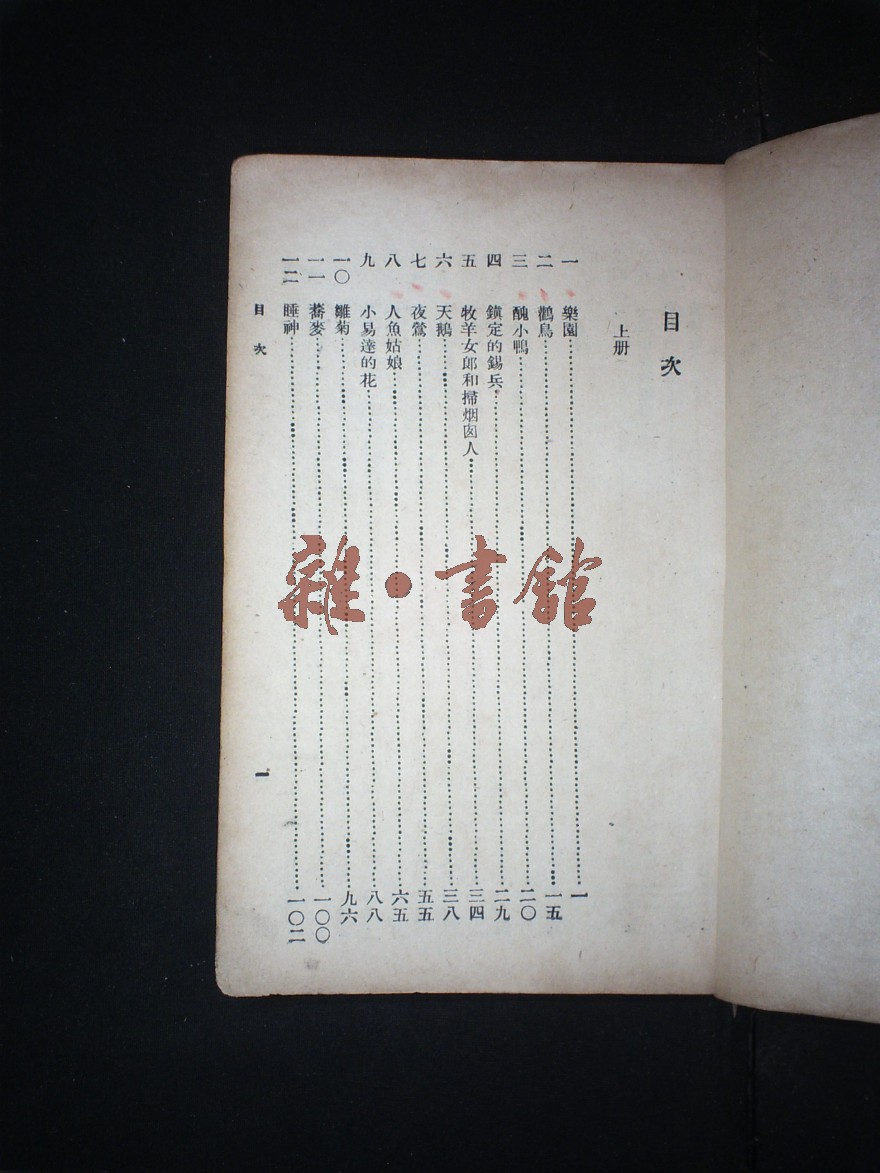 目次
上册
一 樂園……一
二 鸛鳥……一五
三 醜小鴨……二〇
四 鎮定的錫兵……二九
五 牧羊女郎和掃烟囱人……三四
六 天鵝……三八
七 夜鶯……五五
八 人魚姑娘……六五
九 小易達的花……八八
一〇 雛菊……九六
一一 蕎麥……一〇〇
一二 睡神……一〇二
目次
一
雜·書館